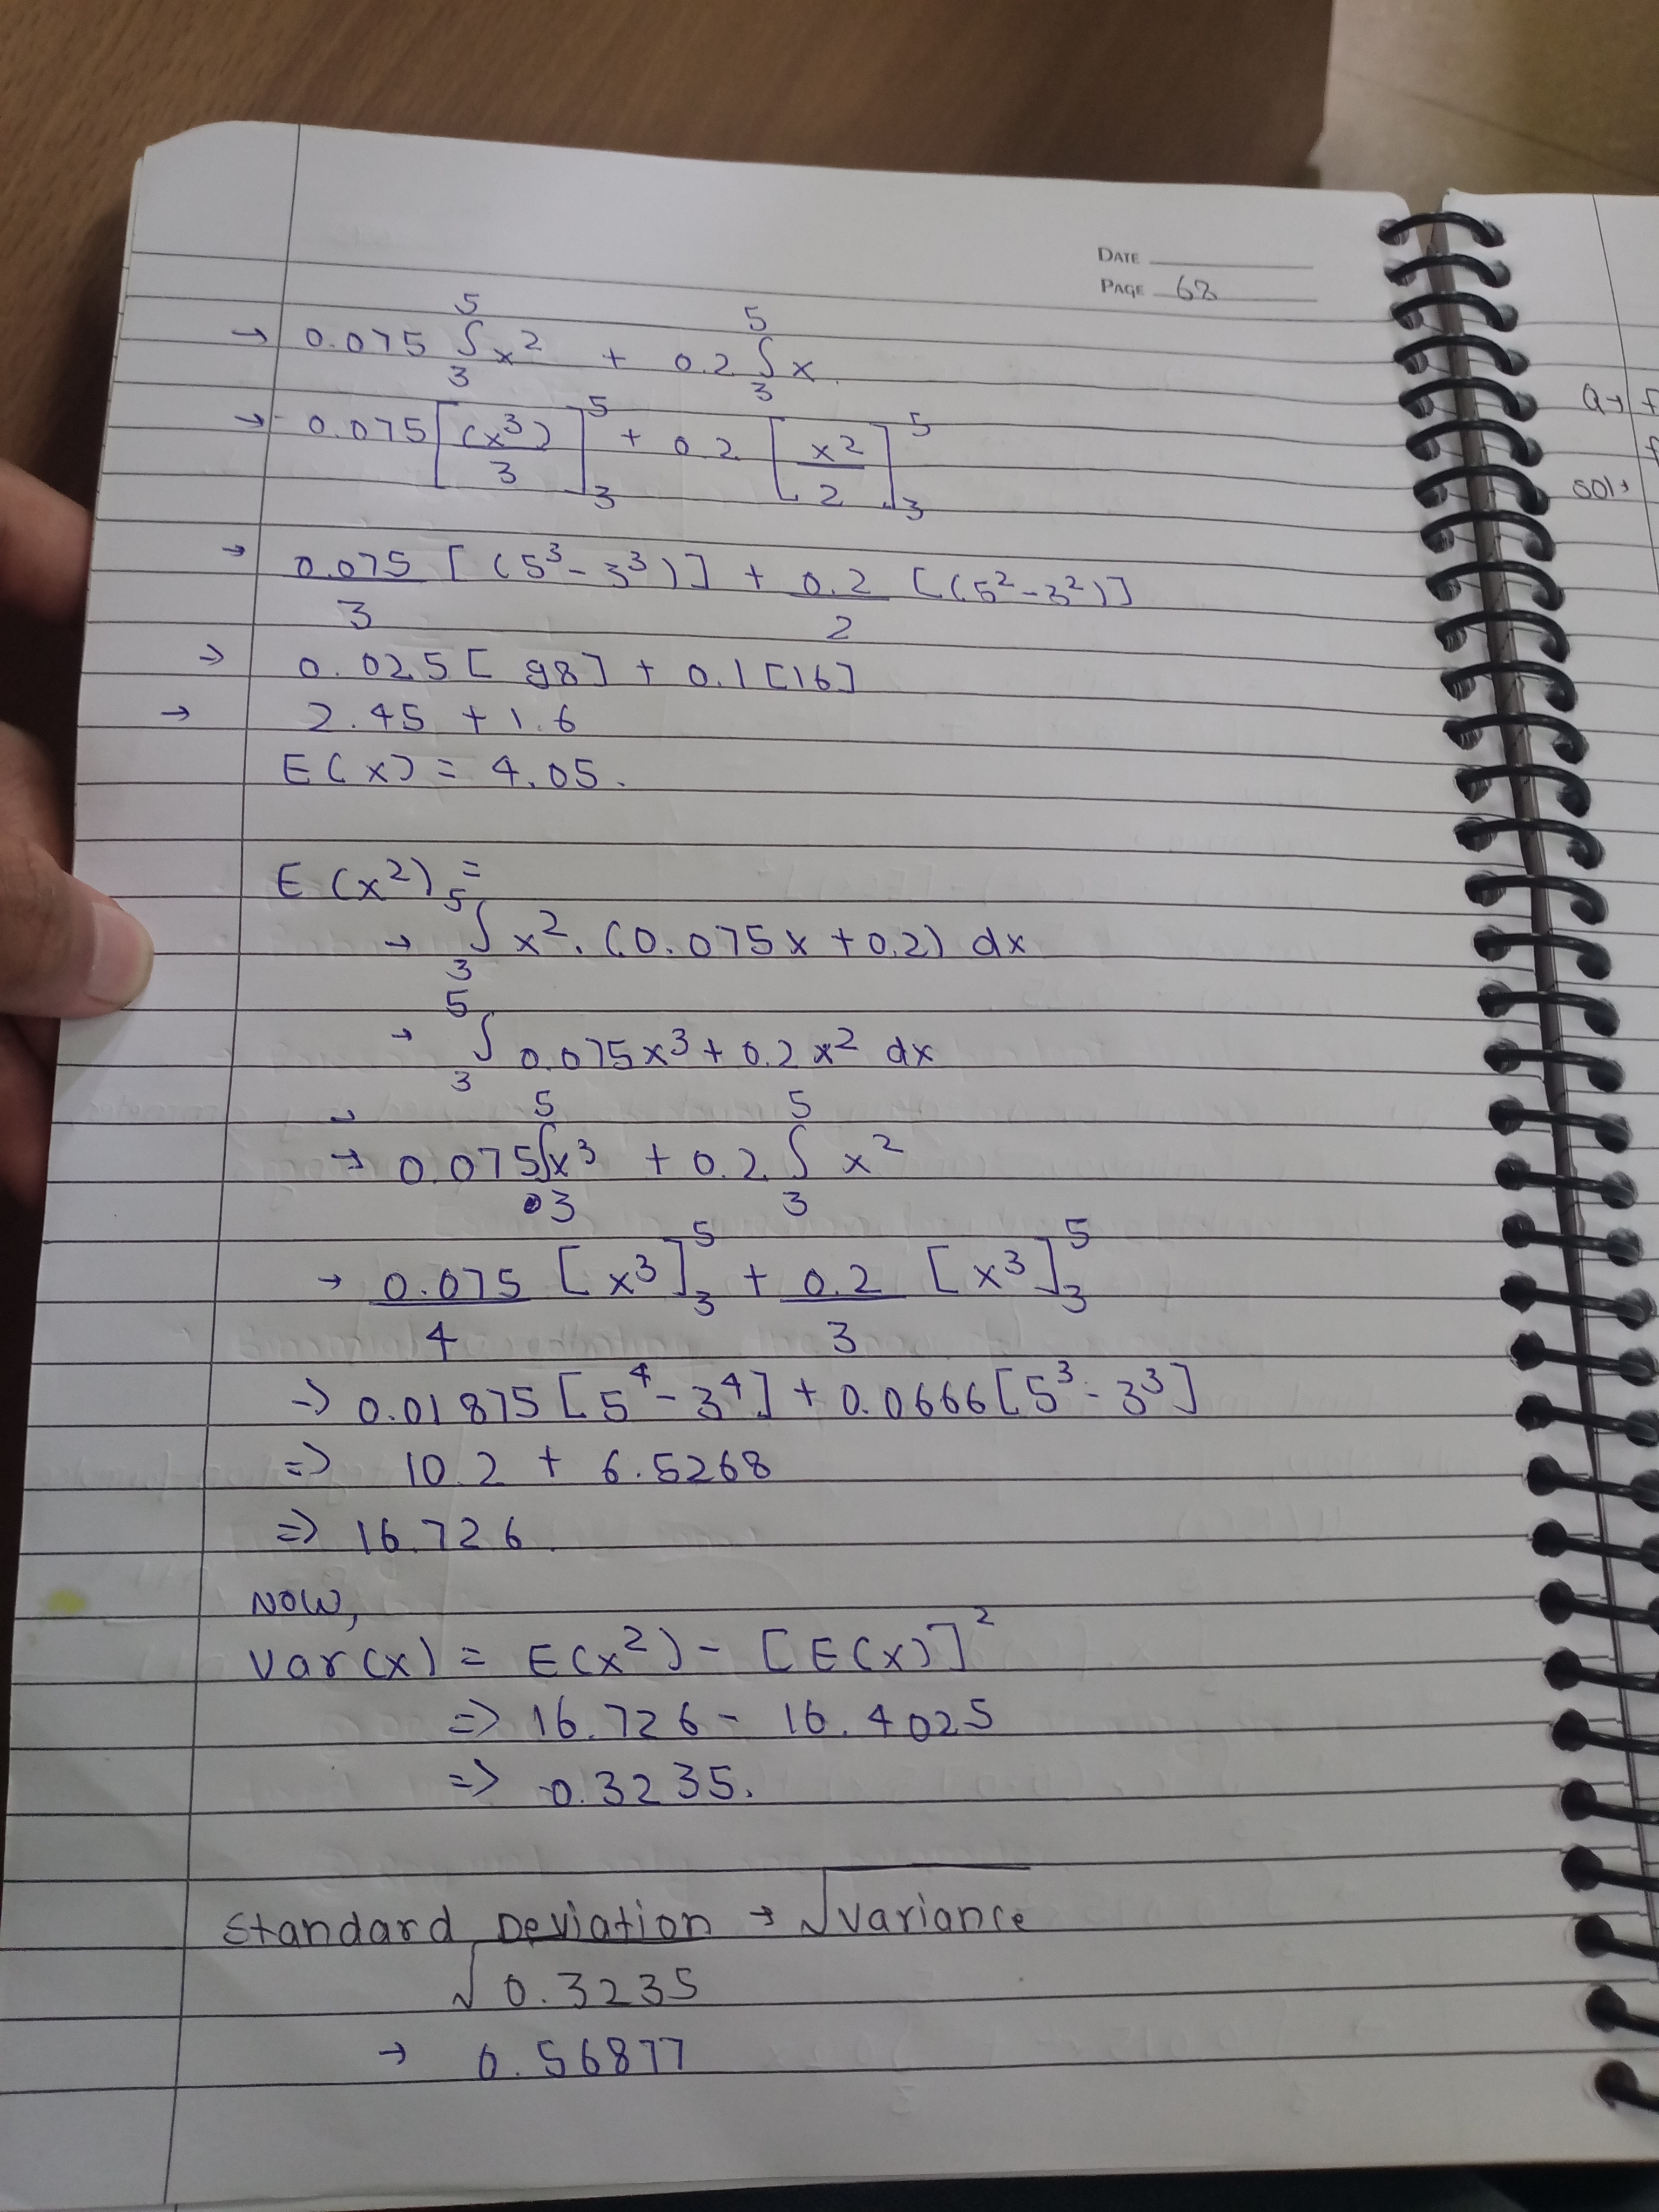 DATE
PAGE 68
→ 0.075 ⁵∫₃ x² + 0.2 ⁵∫₃ x
→ 0.075 [(x³)/3]⁵₃ + 0.2 [x²/2]⁵₃
→ 0.075/3 [(5³-3³)] + 0.2/2 [(5²-3²)]
→ 0.025 [98] + 0.1 [16]
→ 2.45 + 1.6
E(x) = 4.05.
E(x²) =
→ ⁵∫₃ x². (0.075x + 0.2) dx
→ ⁵∫₃ 0.075x³ + 0.2x² dx
→
→ 0.075 ⁵∫₃ x³ + 0.2 ⁵∫₃ x²
→ 0.075/4 [x³]⁵₃ + 0.2/3 [x³]⁵₃
⇒ 0.01875 [5⁴-3⁴] + 0.0666 [5³-3³]
⇒ 10.2 + 6.5268
⇒ 16.726.
NOW,
Var(x) = E(x²) - [E(x)]²
⇒ 16.726 - 16.4025
⇒ 0.3235.
Standard Deviation → √variance
√0.3235
→ 0.56877
Q→ f
f
Sol→